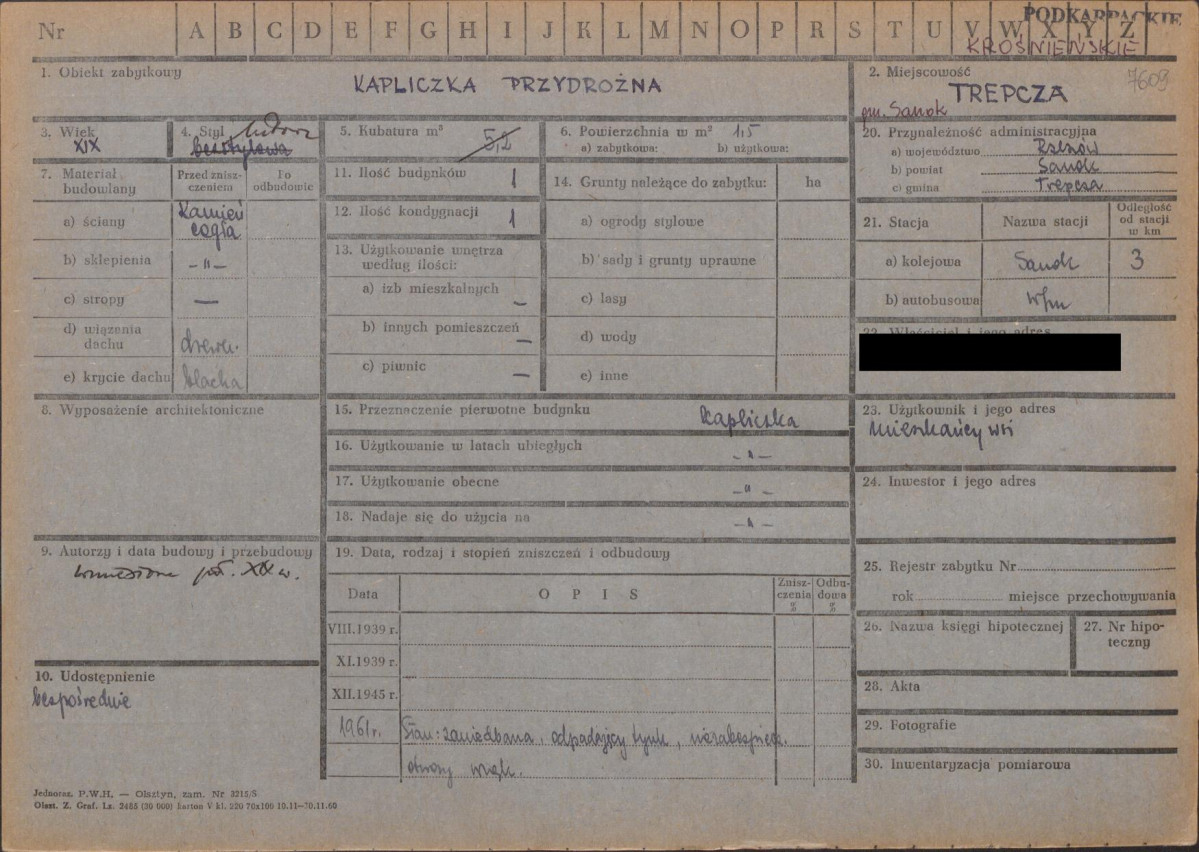 PODKARPACKIE
Nr A B C D E F G H I J K L M N O P R S T U V W X Y Z
KROŚNIEŃSKIE
1. Obiekt zabytkowy
KAPLICZKA PRZYDROŻNA
2. Miejscowość
7609
TREPCZA
gm. Sanok
3. Wiek
XIX
4. Styl ludowa
bezstylowa
5. Kubatura m³
5,2
6. Powierzchnia w m² 1,5
a) zabytkowa: b) użytkowa:
20. Przynależność administracyjna
a) województwo Rzeszów
b) powiat Sanok
c) gmina Trepcza
7. Materiał budowlany
Przed zniszczeniem
Po odbudowie
a) ściany Kamień cegła
b) sklepienia -"-
c) stropy —
d) wiązania dachu drewn.
e) krycie dachu blacha
11. Ilość budynków 1
12. Ilość kondygnacji 1
13. Użytkowanie wnętrza
według ilości:
a) izb mieszkalnych —
b) innych pomieszczeń —
c) piwnic —
14. Grunty należące do zabytku: ha
a) ogrody stylowe
b) sady i grunty uprawne
c) lasy
d) wody
e) inne
21. Stacja Nazwa stacji Odległość od stacji w km
a) kolejowa Sanok 3
b) autobusowa w/m
22. Właściciel i jego adres
8. Wyposażenie architektoniczne
15. Przeznaczenie pierwotne budynku kapliczka
16. Użytkowanie w latach ubiegłych -"-
17. Użytkowanie obecne -"-
18. Nadaje się do użycia na -"-
23. Użytkownik i jego adres
mieszkańcy wsi
24. Inwestor i jego adres
9. Autorzy i data budowy i przebudowy
wzniesione poł. XIX w.
19. Data, rodzaj i stopień zniszczeń i odbudowy
Data OPIS Zniszczenia % Odbudowa %
VIII.1939 r.
XI.1939 r.
XII.1945 r.
1961 r. Stan: zaniedbana, odpadający tynk, niezabezpiecz.
otwory
25. Rejestr zabytku Nr
rok miejsce przechowywania
26. Nazwa księgi hipotecznej
27. Nr hipoteczny
10. Udostępnienie
bezpośrednie
28. Akta
29. Fotografie
30. Inwentaryzacja pomiarowa
Jednoraz. P.W.H. — Olsztyn, zam. Nr 3215/S
Olszt. Z. Graf. Lz. 2485 (30 000) karton V kl. 220 70x100 10.11—30.11.60